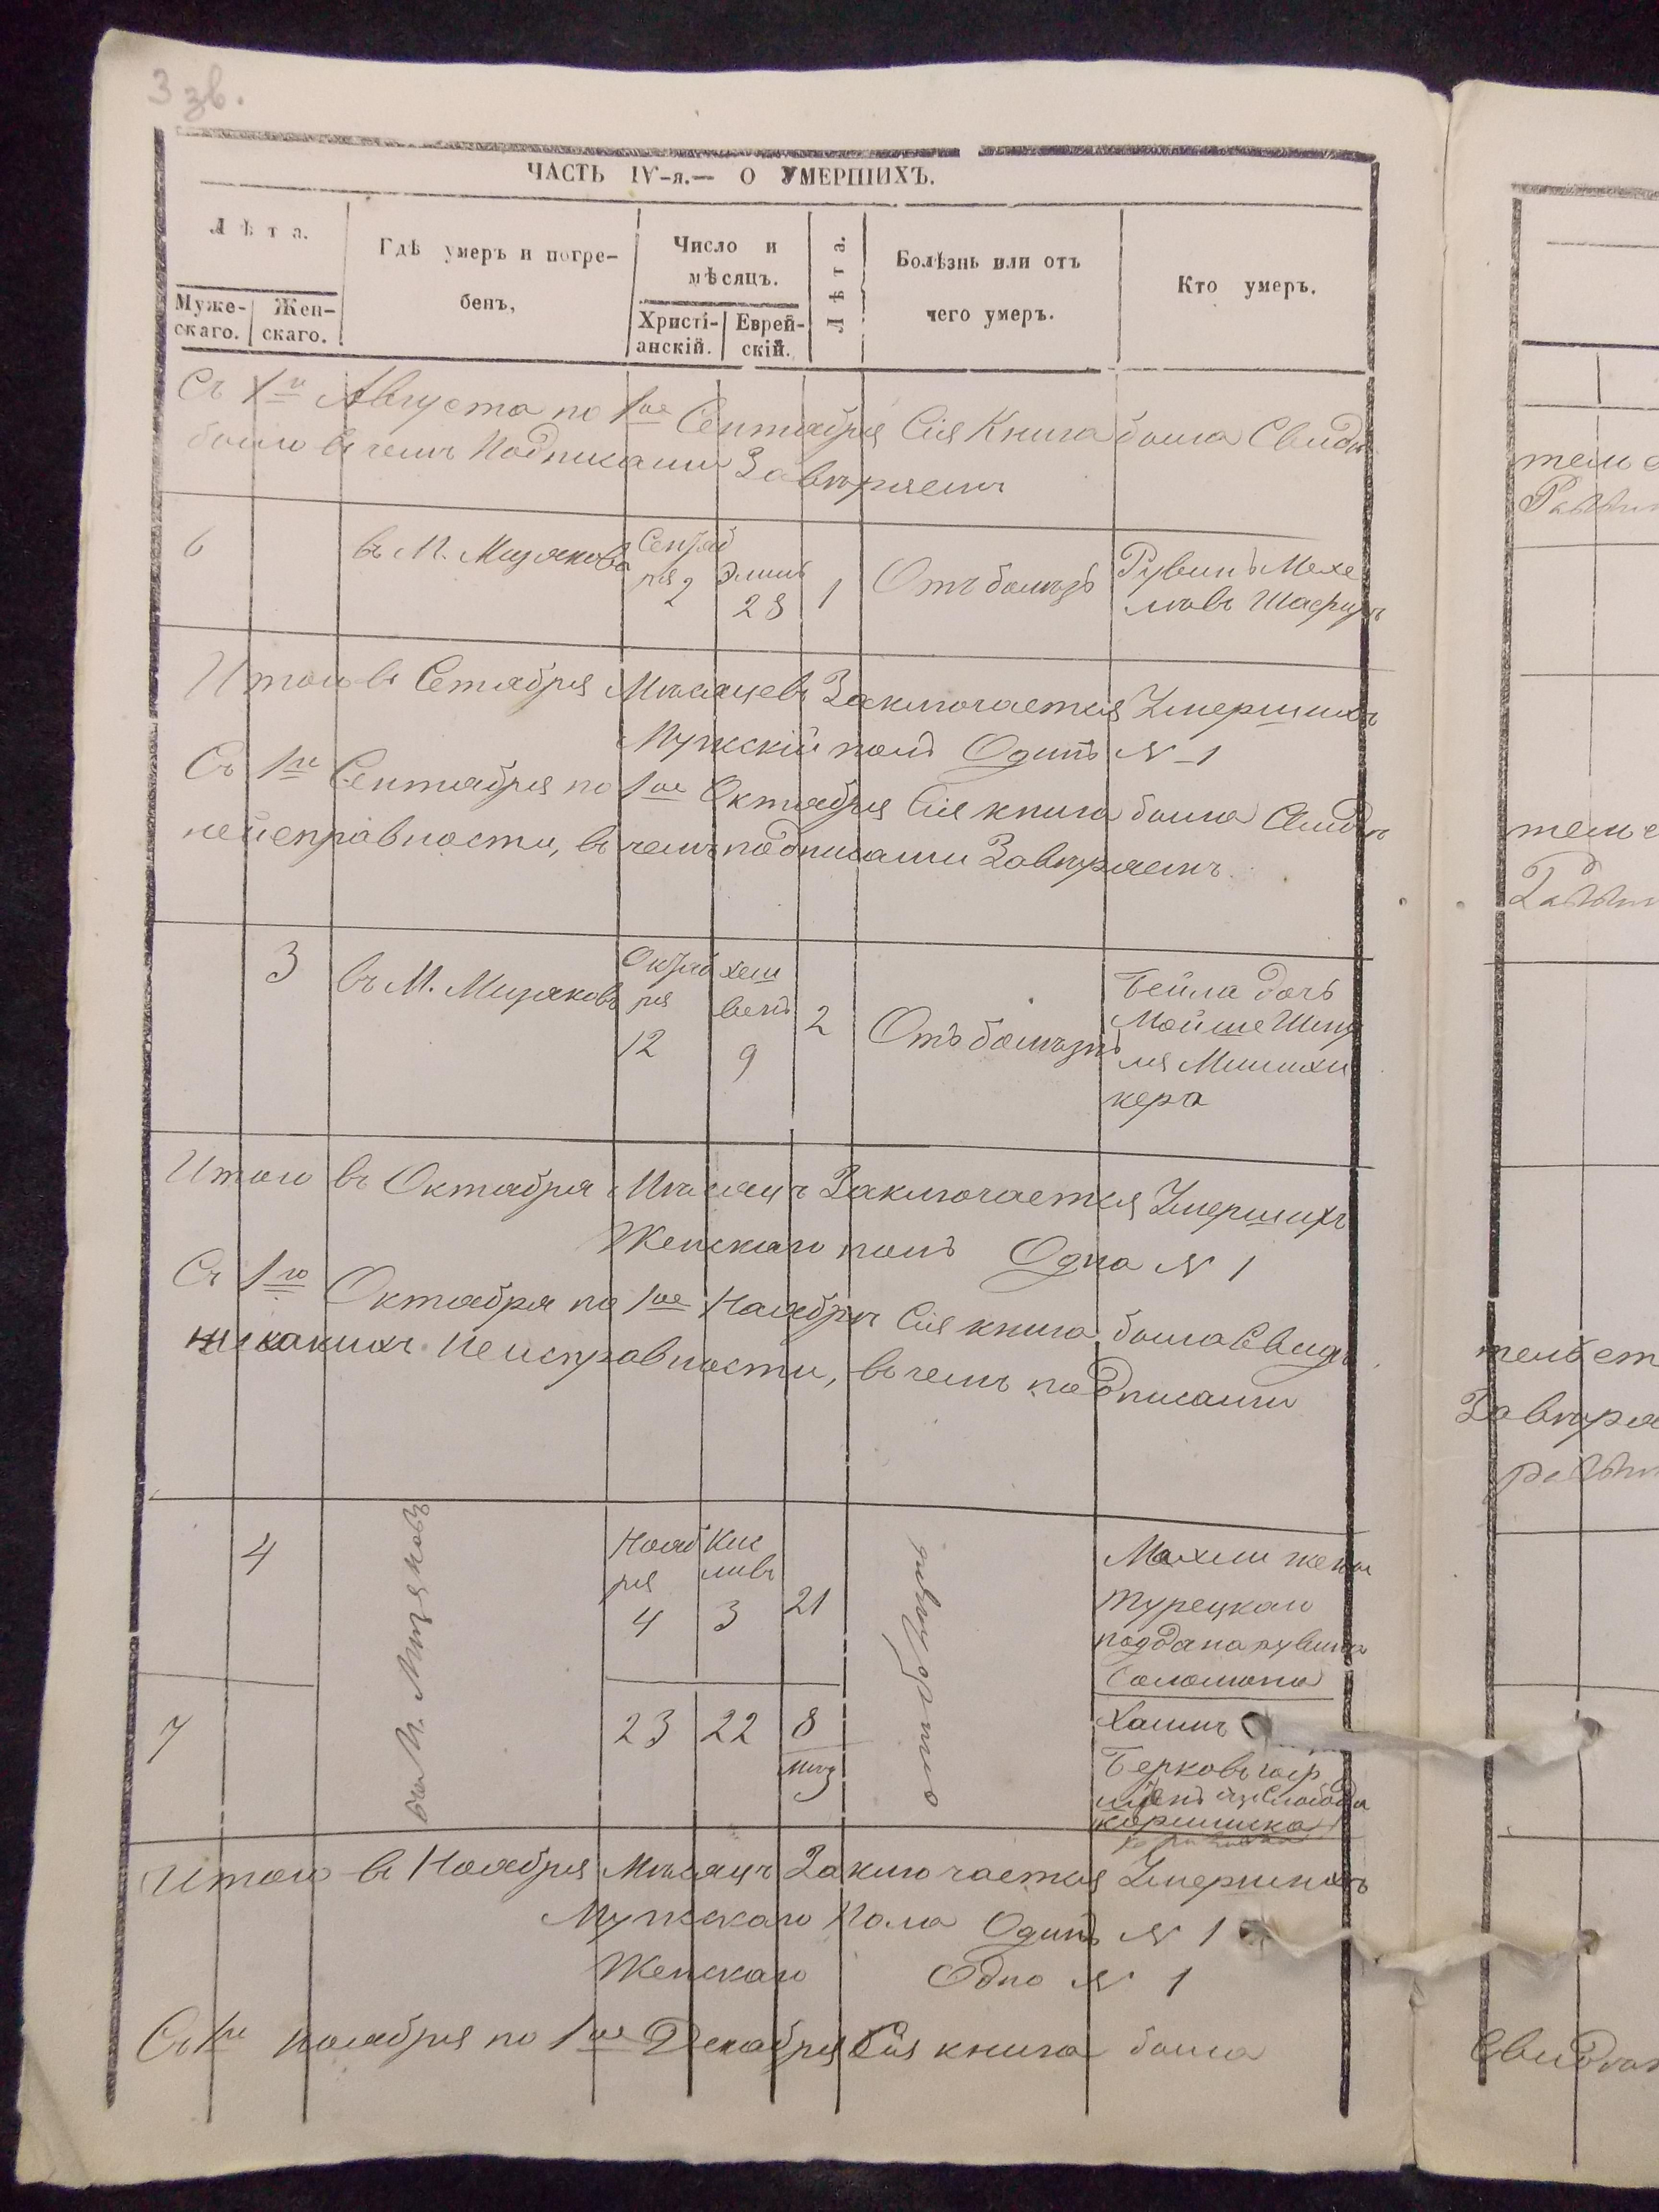 3 зв.
ЧАСТЬ IV-я.— О УМЕРШИХЪ.
Лѣта.
Муже-скаго.
Жен-скаго.
Гдѣ умеръ и погре-
бенъ,
Число и
мѣсяцъ.
Христі-анскій.
Еврей-скій.
Лѣта.
Болѣзнь или отъ
чего умеръ.
Кто умеръ.
Съ 1го Августа по 1ое Сентября Сія Книга была Свидѣ
было въ чемъ Подписами Завѣряемъ
6
въ М. Мизякова
Сентяб
ря 2
Элулъ
28
1
Отъ болѣзъ
Рувинъ Мехе
левъ Шафиръ
Итого въ Сетября Мѣсяцевъ Заключается Умершихъ
Мужскій полъ Одинъ N 1
Съ 1го Сентября по 1ое Октября Сія книга была Свидѣ
неисправности, въ чемъ подписами Завѣряемъ
3
въ М. Мизяковъ
Октяб
ря
12
хеш
венъ
9
2
Отъ болѣзнъ
Бейла дочь
Мойше Шму
ля
кера
Итого въ Октября Мѣсяцъ Заключается Умершихъ
Женскаго полъ Одна N 1
Съ 1го Октября по 1ое Наябръ Сія книга была Свидѣ
никакихъ Неисправности, въ чемъ подписами
4
въ М. Мизяковъ
Нояб
ря
4
Кис
ливъ
3
21
отъ
жена
Турецкаго
Соломона
7
23
22
8
мѣз
Хаимъ
Берковъ
Итого въ Ноября Мѣсяцъ Заключается Умершихъ
Мужскаго Пола Одинъ N 1
Женскаго Одно N 1
Съ 1го Ноября по 1ое Декабря Сія книга была